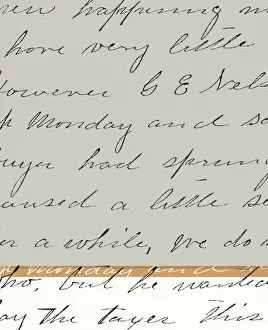 happening
have very little
However G E Nels
Monday and so
buyer had sprung
caused a little se
for a while, we do
Monday and
who, but he wanted
pay the taxes this